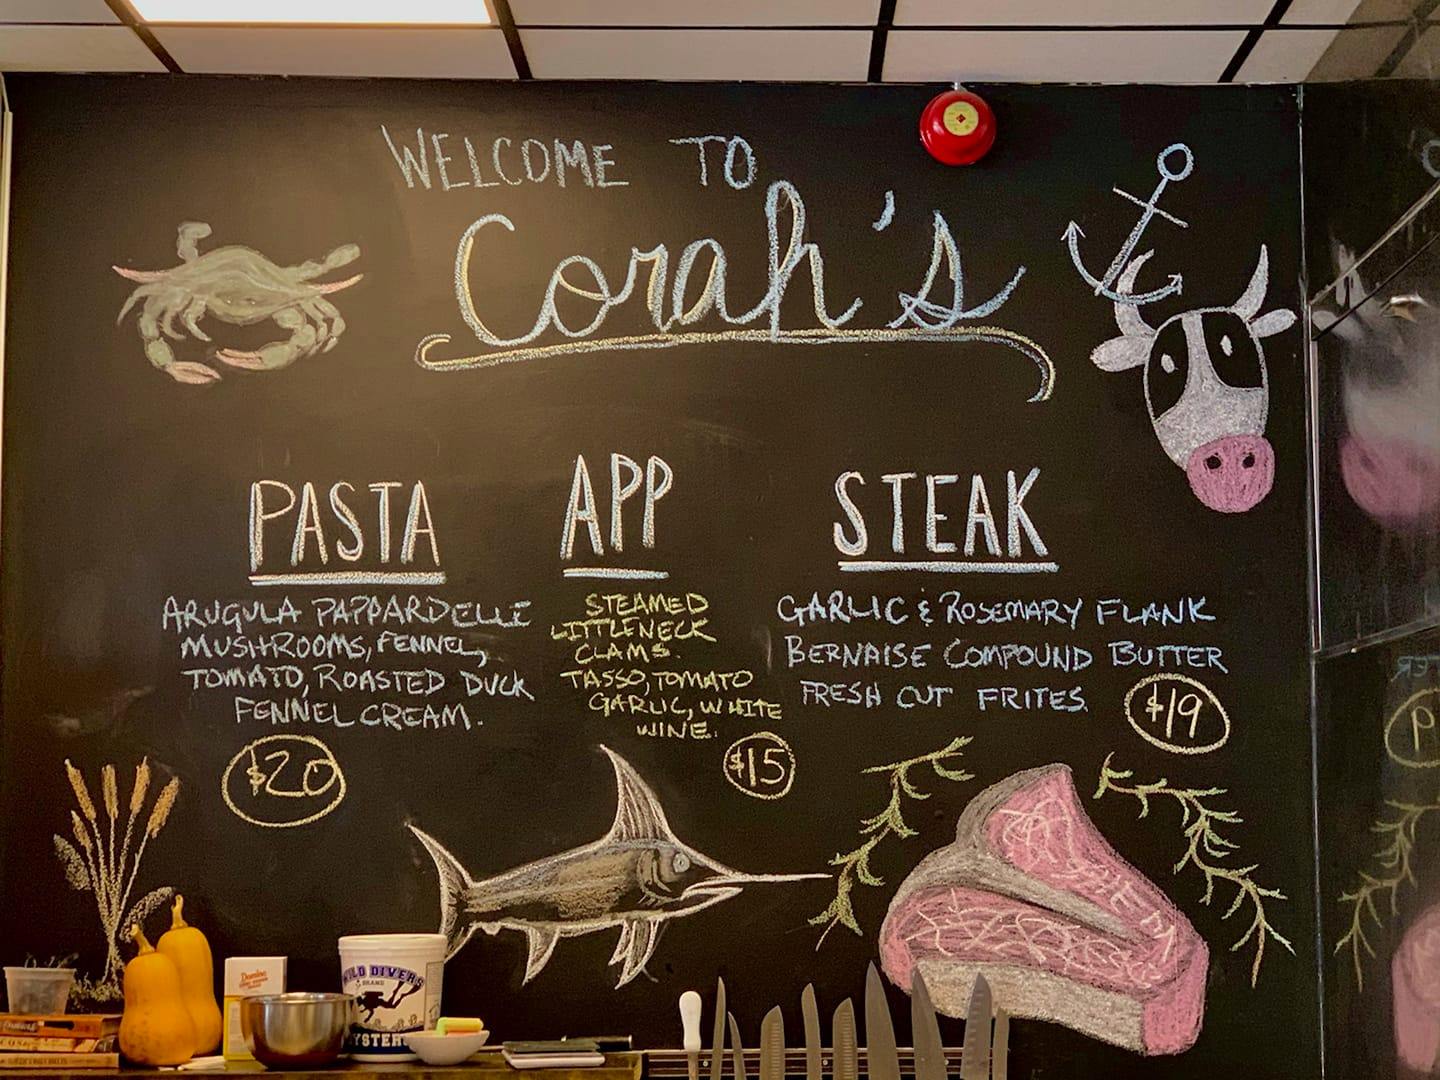 WELCOME TO
Corah's
PASTA
ARUGULA PAPPARDELLE
MUSHROOMS, FENNEL,
TOMATO, ROASTED DUCK
FENNEL CREAM.
$20
APP
STEAMED
LITTLENECK
CLAMS.
TASSO, TOMATO
GARLIC, WHITE
WINE.
$15
STEAK
GARLIC & ROSEMARY FLANK
BERNAISE COMPOUND BUTTER
FRESH CUT FRITES.
$19
Domino
WILD DIVERS
BRAND
OYSTERS